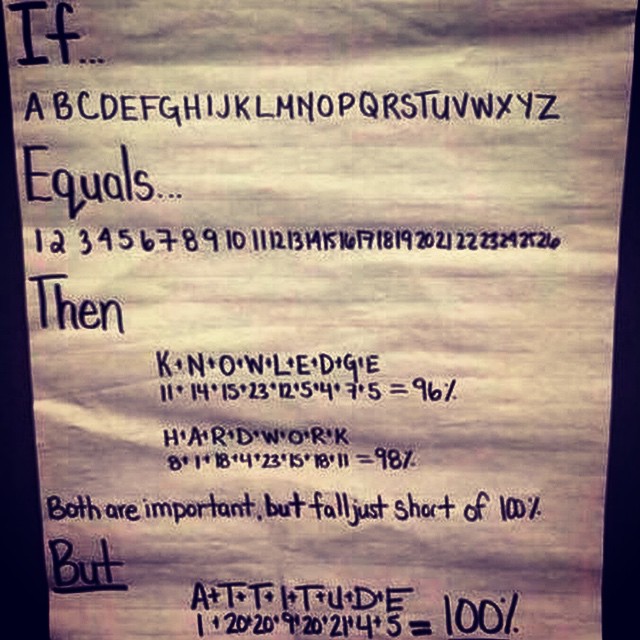 If...
A B C D E F G H I J K L M N O P Q R S T U V W X Y Z
Equals...
1 2 3 4 5 6 7 8 9 10 11 12 13 14 15 16 17 18 19 20 21 22 23 24 25 26
Then
K+N+O+W+L+E+D+G+E
11+14+15+23+12+5+4+7+5 = 96%
H+A+R+D+W+O+R+K
8+1+18+4+23+15+18+11 = 98%
Both are important, but fall just short of 100%
But
A+T+T+I+T+U+D+E
1+20+20+9+20+21+4+5 = 100%